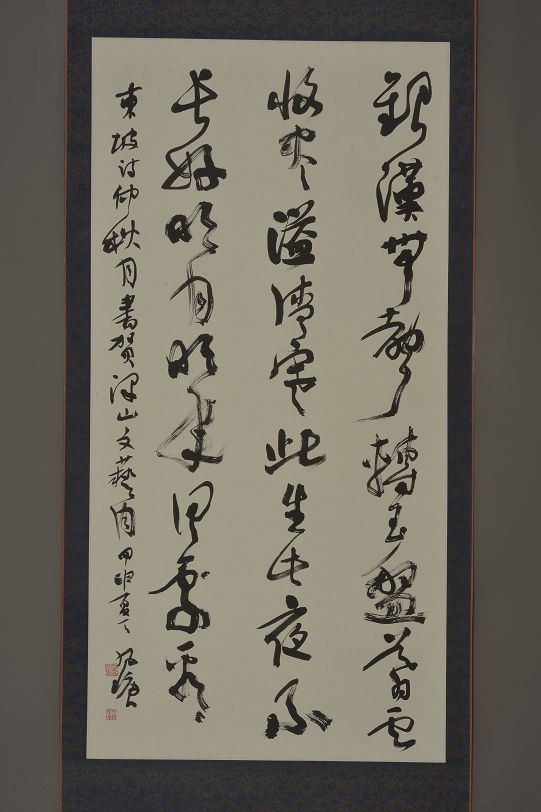 銀漢無聲轉玉盤暮雲
收盡溢清寒此生此夜不
長好明月明年何處看
東坡詩仲秋月書賀 山文藝 甲申夏